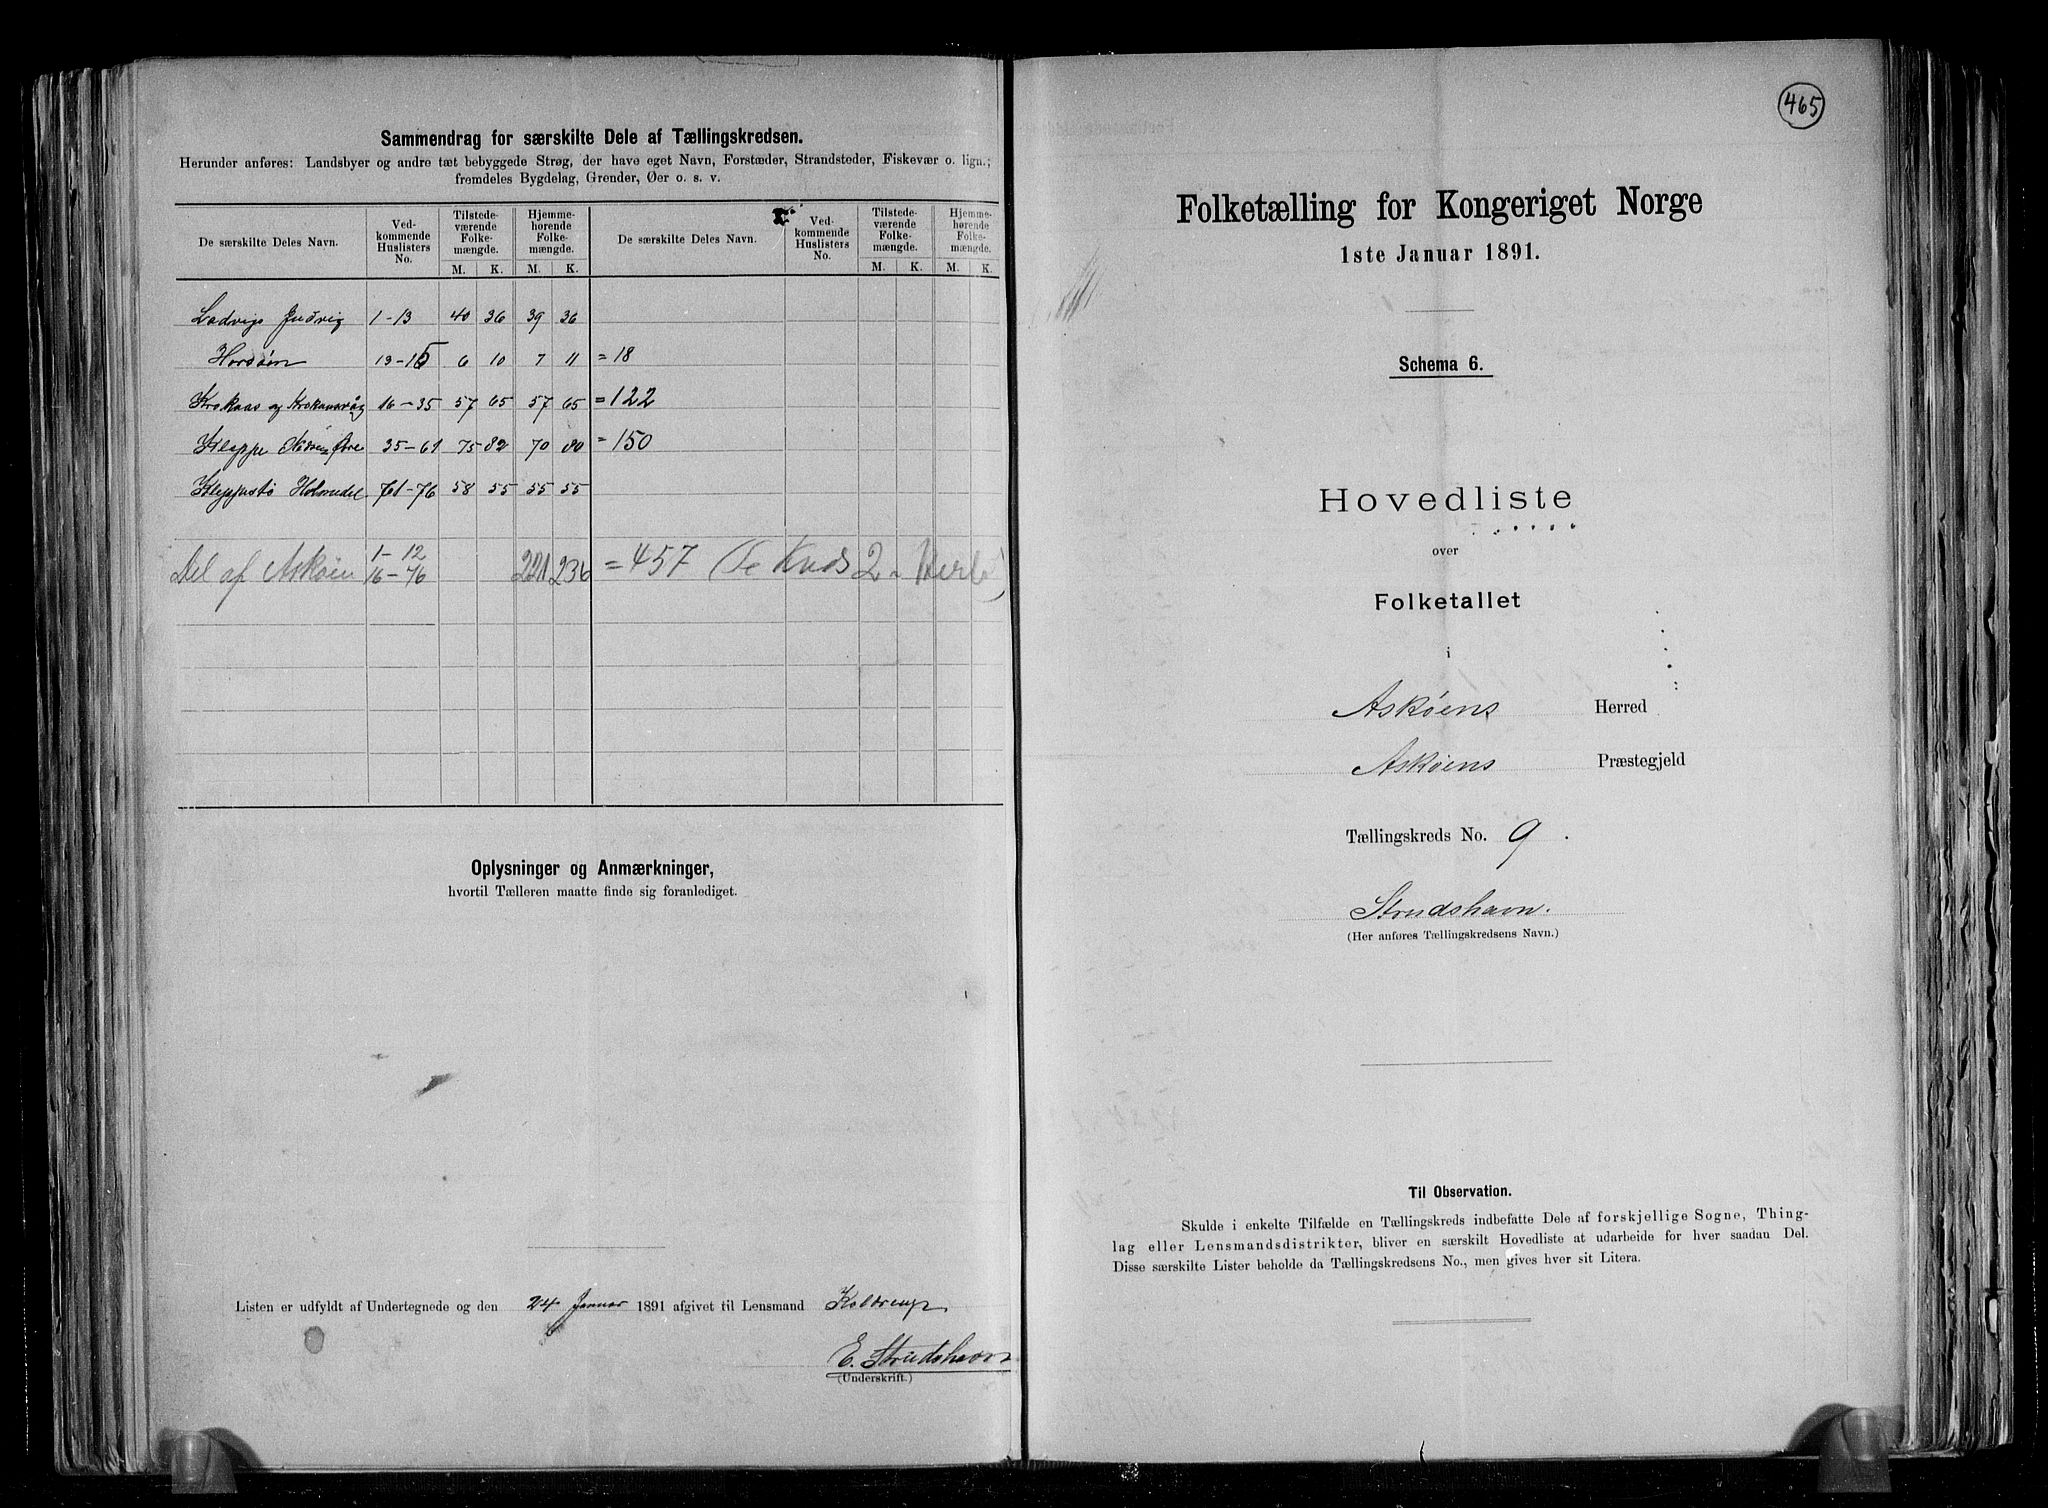 Sammendrag for særskilte Dele af Tællingskredsen.
Herunder anføres: Landsbyer og andre tæt bebyggede Strøg, der have eget Navn, Forstæder, Strandsteder, Fiskevær o. lign.;
fremdeles Bygdelag, Grender, Øer o. s. v.
De særskilte Deles Navn. Ved-kommende Huslisters No. Tilstede-værende Folke-mængde. Hjemme-hørende Folke-mængde. De særskilte Deles Navn. Ved-kommende Huslisters No. Tilstede-værende Folke-mængde. Hjemme-hørende Folke-mængde.
M. K. M. K. M. K. M. K.
1-13 40 36 39 36
Horsöen 13-15 6 10 7 11 = 18
Krokaas og Krokaasvåg 16-35 57 65 57 65 = 122
Kleppe Nedre Øvre 35-61 75 82 70 80 = 150
Kleppestö 61-76 58 55 55 55
Del af Askøen 1-12 16-76 221 236 = 457 2
Oplysninger og Anmærkninger,
hvortil Tælleren maatte finde sig foranlediget.
Listen er udfyldt af Undertegnede og den 24 Januar 1891 afgivet til Lensmand
E. Strudshavn
(Underskrift.)
465
Folketælling for Kongeriget Norge
1ste Januar 1891.
Schema 6.
Hovedliste
over
Folketallet
i
Askøens Herred
Askøens Præstegjeld
Tællingskreds No. 9.
Strudshavn.
(Her anføres Tællingskredsens Navn.)
Til Observation.
Skulde i enkelte Tilfælde en Tællingskreds indbefatte Dele af forskjellige Sogne, Thing-
lag eller Lensmandsdistrikter, bliver en særskilt Hovedliste at udarbeide for hver saadan Del.
Disse særskilte Lister beholde da Tællingskredsens No., men gives hver sit Litera.